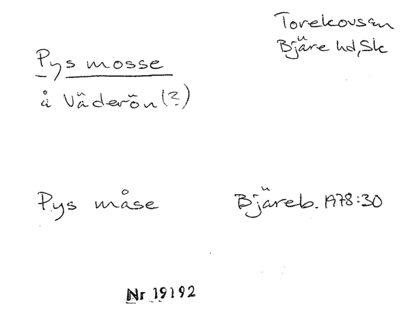 Torekovs sn
Bjäre hd, Sk
Pys mosse
å Väderön (?)
Pys måse Bjäreb. 1978:30
Nr 19192